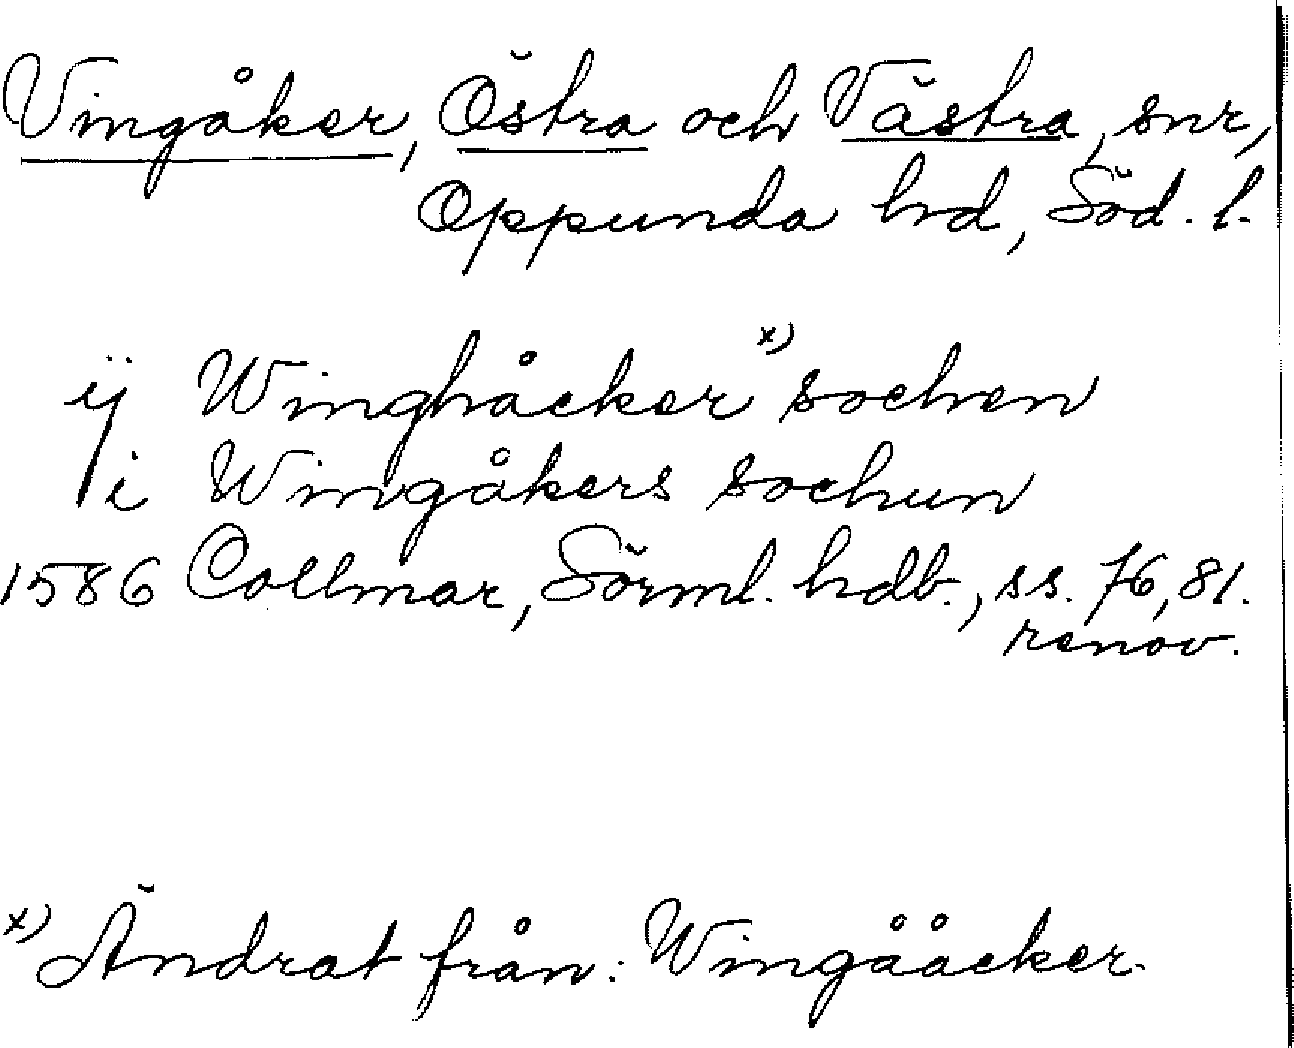 Vingåker, Östra och Västra, snr,
Oppunda hd, Söd. l.
ÿ Winghåcker x) sochen
i Wingåkers sochun
1586 Collmar, Sörml. hdb., ss. 76, 81.
renov.
x) Ändrat från: Wingååcker.